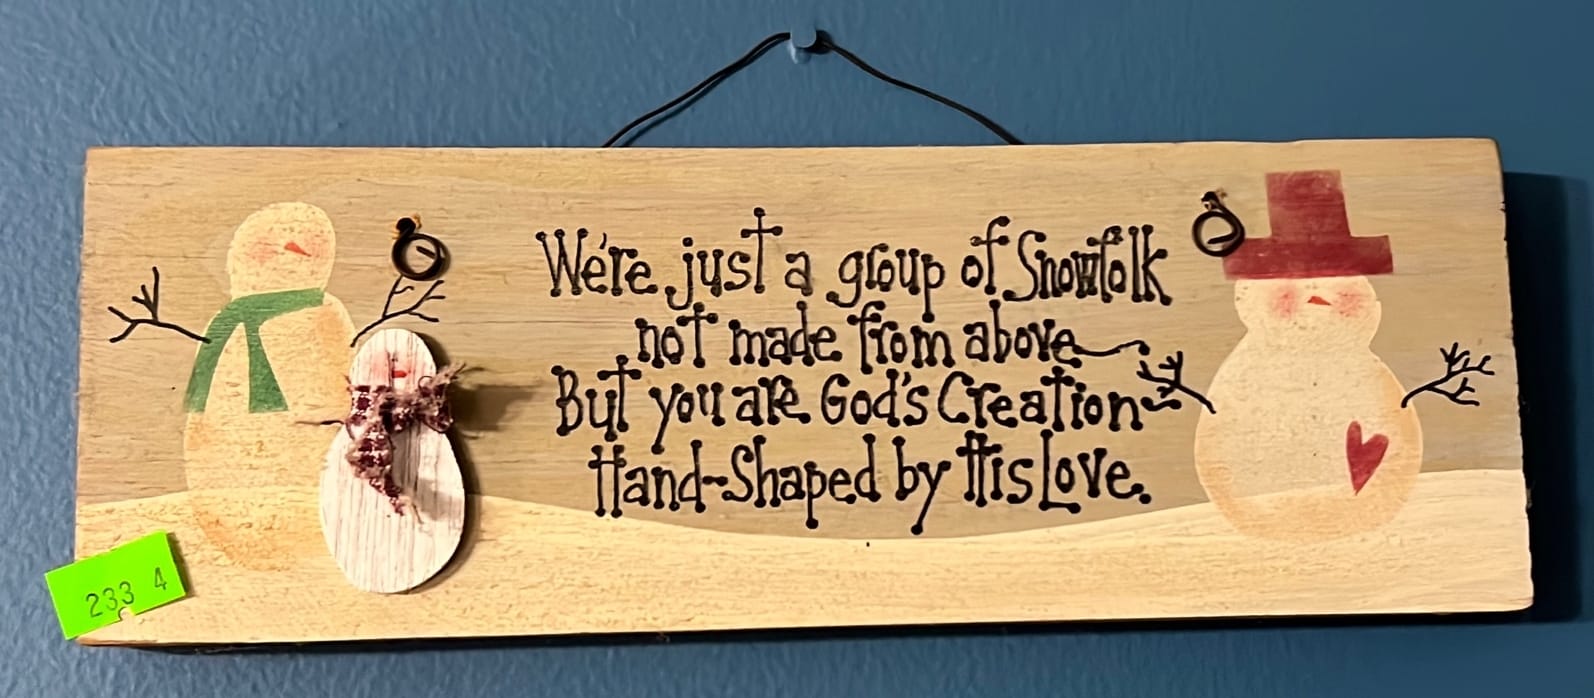 We're just a group of Snowfolk
not made from above
But you are God's Creation
Hand-Shaped by His Love.
233 4